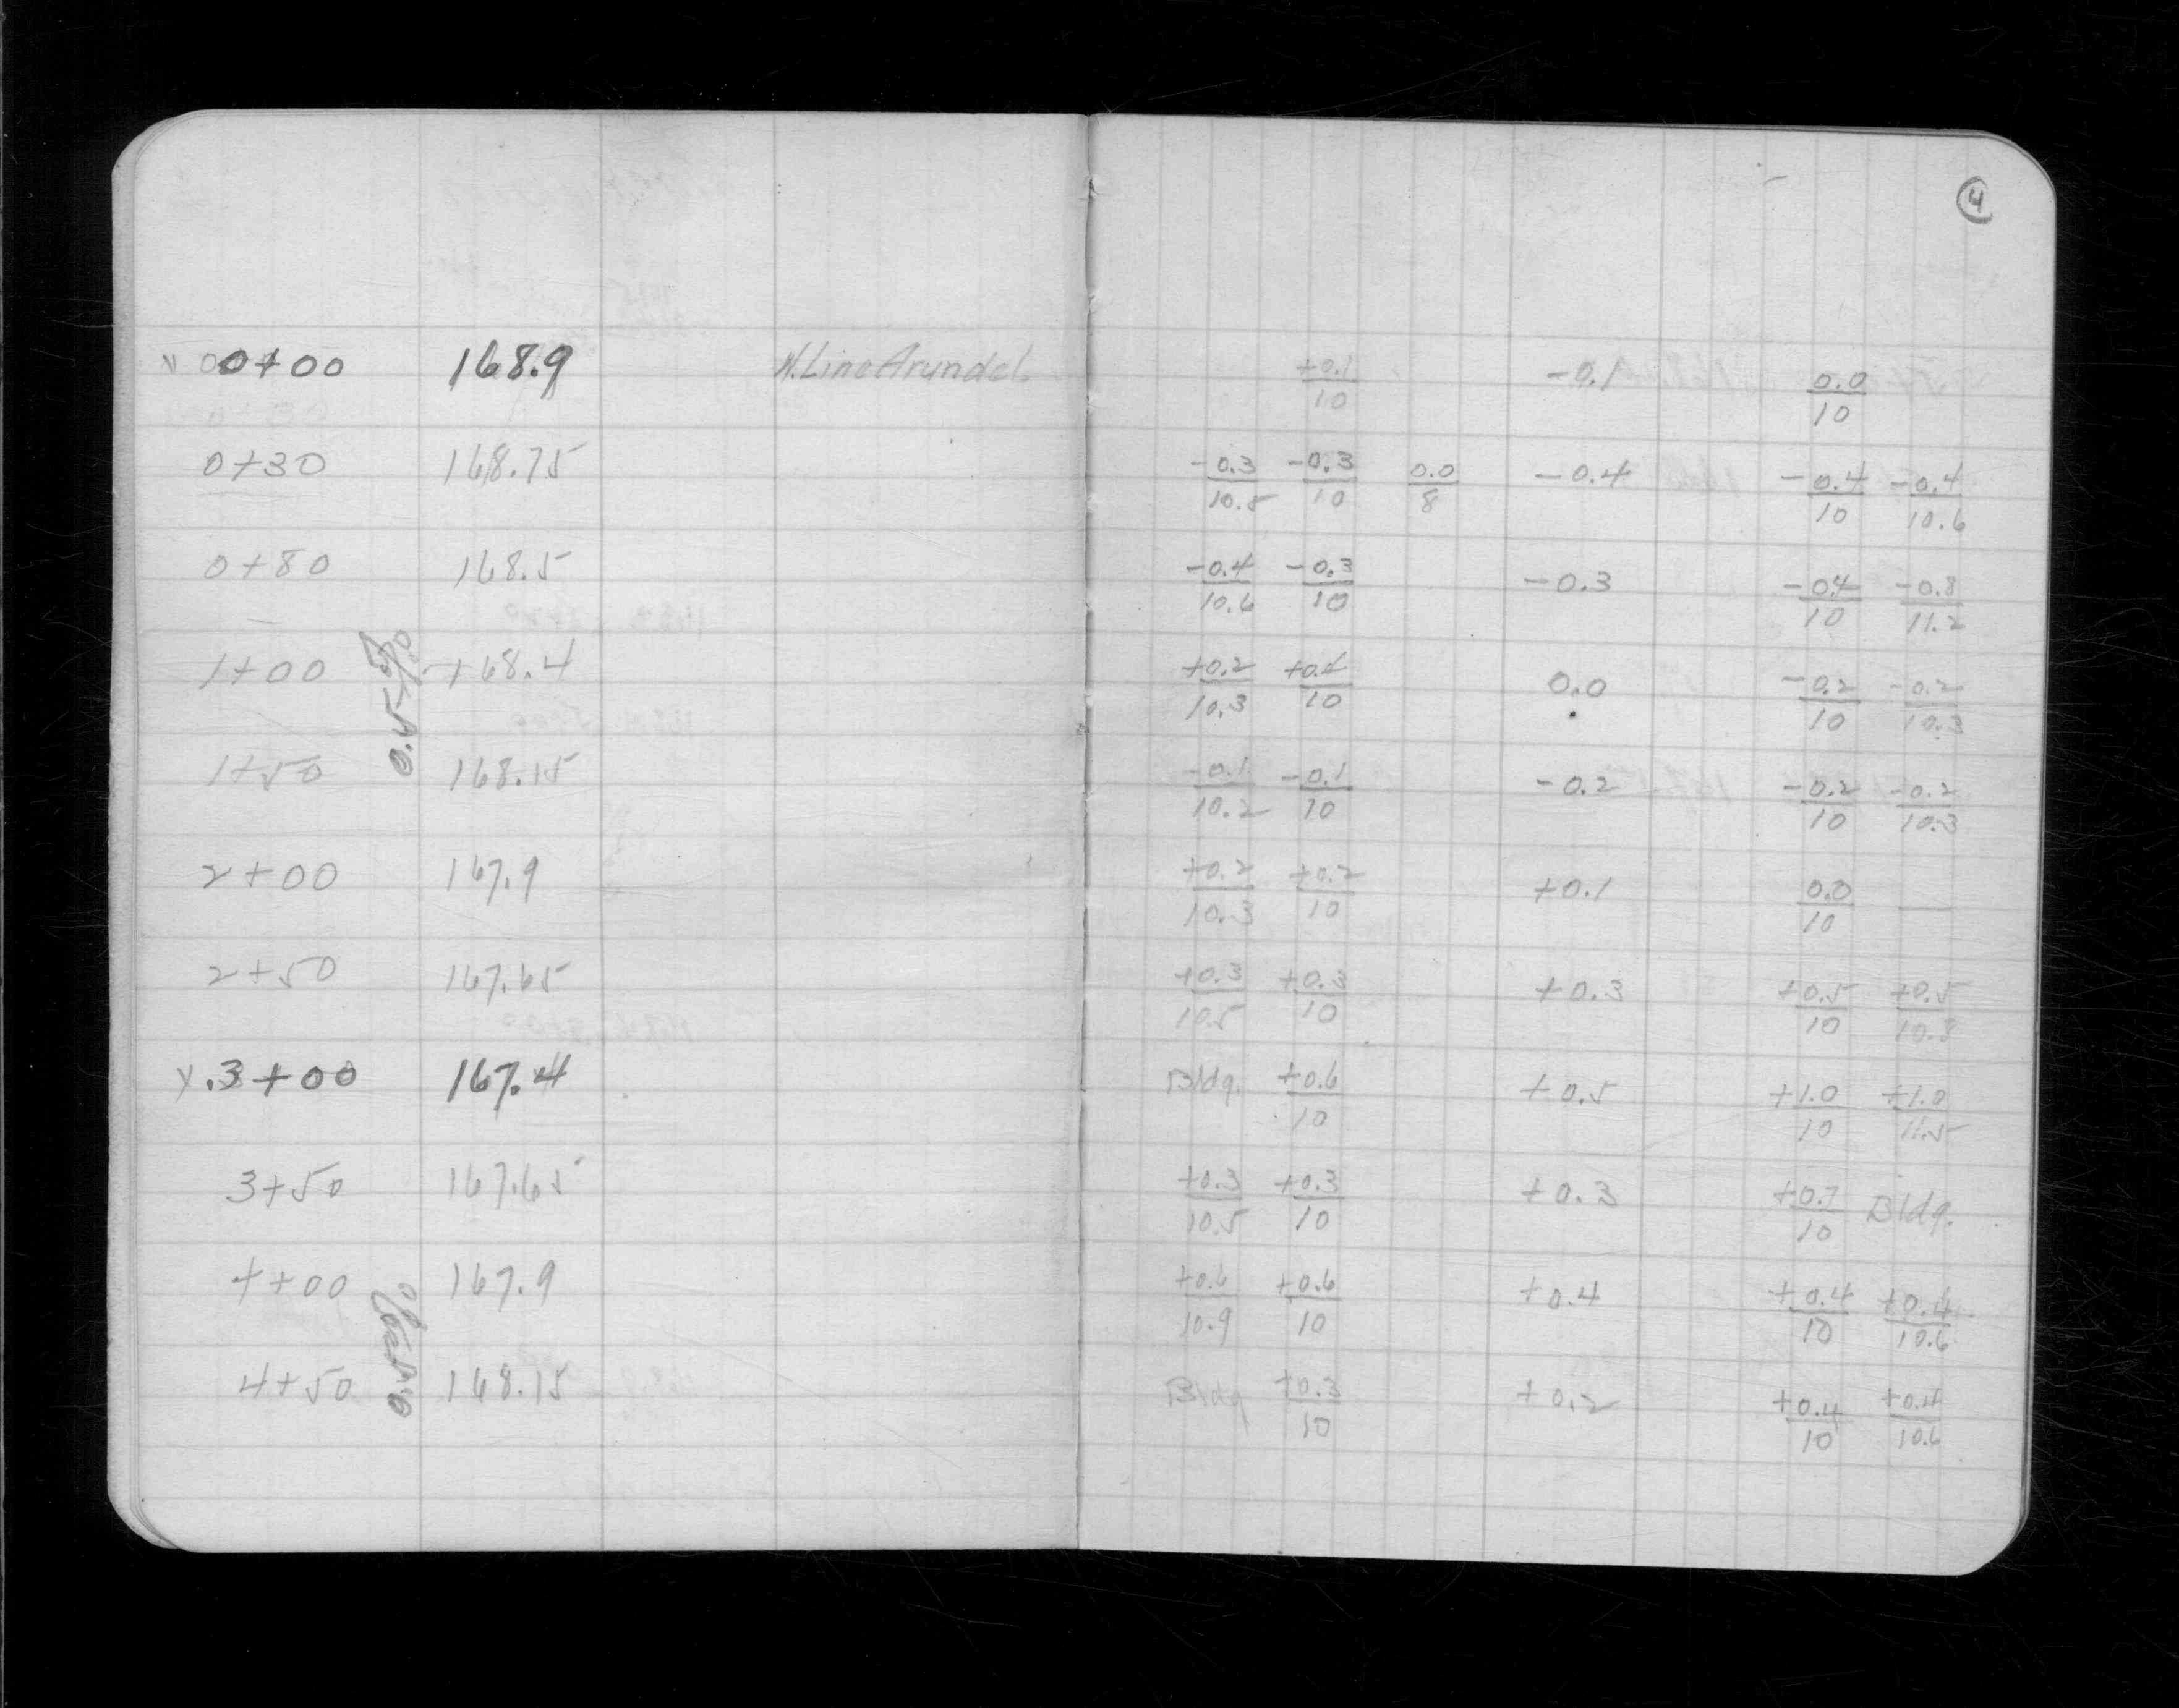 4
0+00 168.9 N. Line Arundel +0.1/10 -0.1 0.0/10
0+30 168.75 -0.3/10.5 -0.3/10 0.0/8 -0.4 -0.4/10 -0.4/10.6
0+80 168.5 -0.4/10.6 -0.3/10 -0.3 -0.4/10 -0.8/11.2
1+00 168.4 +0.2/10.3 10 0.0 -0.2/10 -0.2/10.3
1+50 168.15 -0.1/10.2 -0.1/10 -0.2 -0.2/10 -0.2/10.3
2+00 167.9 +0.2/10.3 +0.2/10 +0.1 0.0/10 —
2+50 167.65 +0.3/10.5 +0.3/10 +0.3 +0.5/10 +0.5/10.8
3+00 167.4 Bldg. +0.6/10 +0.5 +1.0/10 +1.0/11.5
3+50 167.65 +0.3/10.5 +0.3/10 +0.3 +0.7/10 Bldg.
4+00 167.9 +0.6/10.9 +0.6/10 +0.4 +0.4/10 +0.4/10.6
4+50 168.15 Bldg +0.3/10 +0.2 +0.4/10 +0.4/10.6